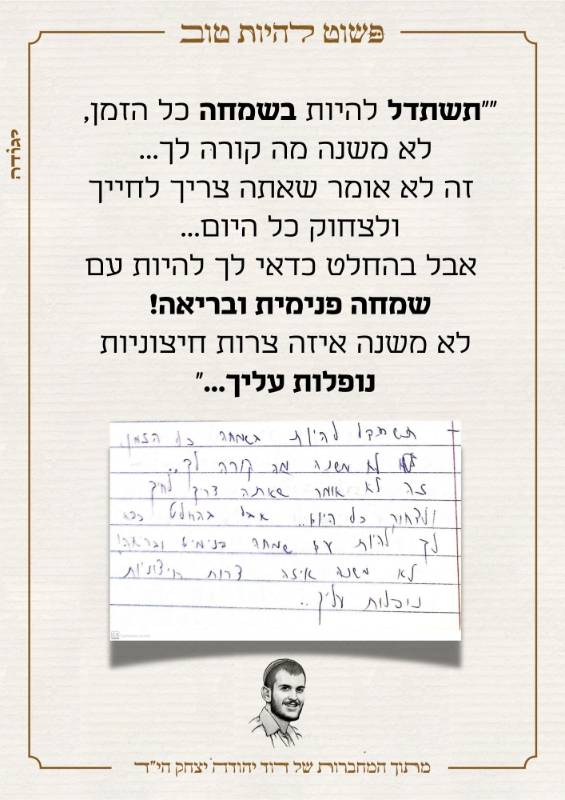 פשוט להיות טוב
יגודה
""תשתדל להיות בשמחה כל הזמן,
לא משנה מה קורה לך...
זה לא אומר שאתה צריך לחייך
ולצחוק כל היום...
אבל בהחלט כדאי לך להיות עם
שמחה פנימית ובריאה!
לא משנה איזה צרות חיצוניות
נופלות עליך..."
תשתדל להיות בשמחה כל הזמן
לא משנה מה קורה לך..
זה לא אומר שאתה צריך לחייך
ולצחוק כל היום.. אבל בהחלט כדאי
לך להיות עם שמחה פנימית ובריאה!
לא משנה איזה צרות חיצוניות
נופלות עליך..
מתוך המחברות של דוד יהודה יצחק הי"ד